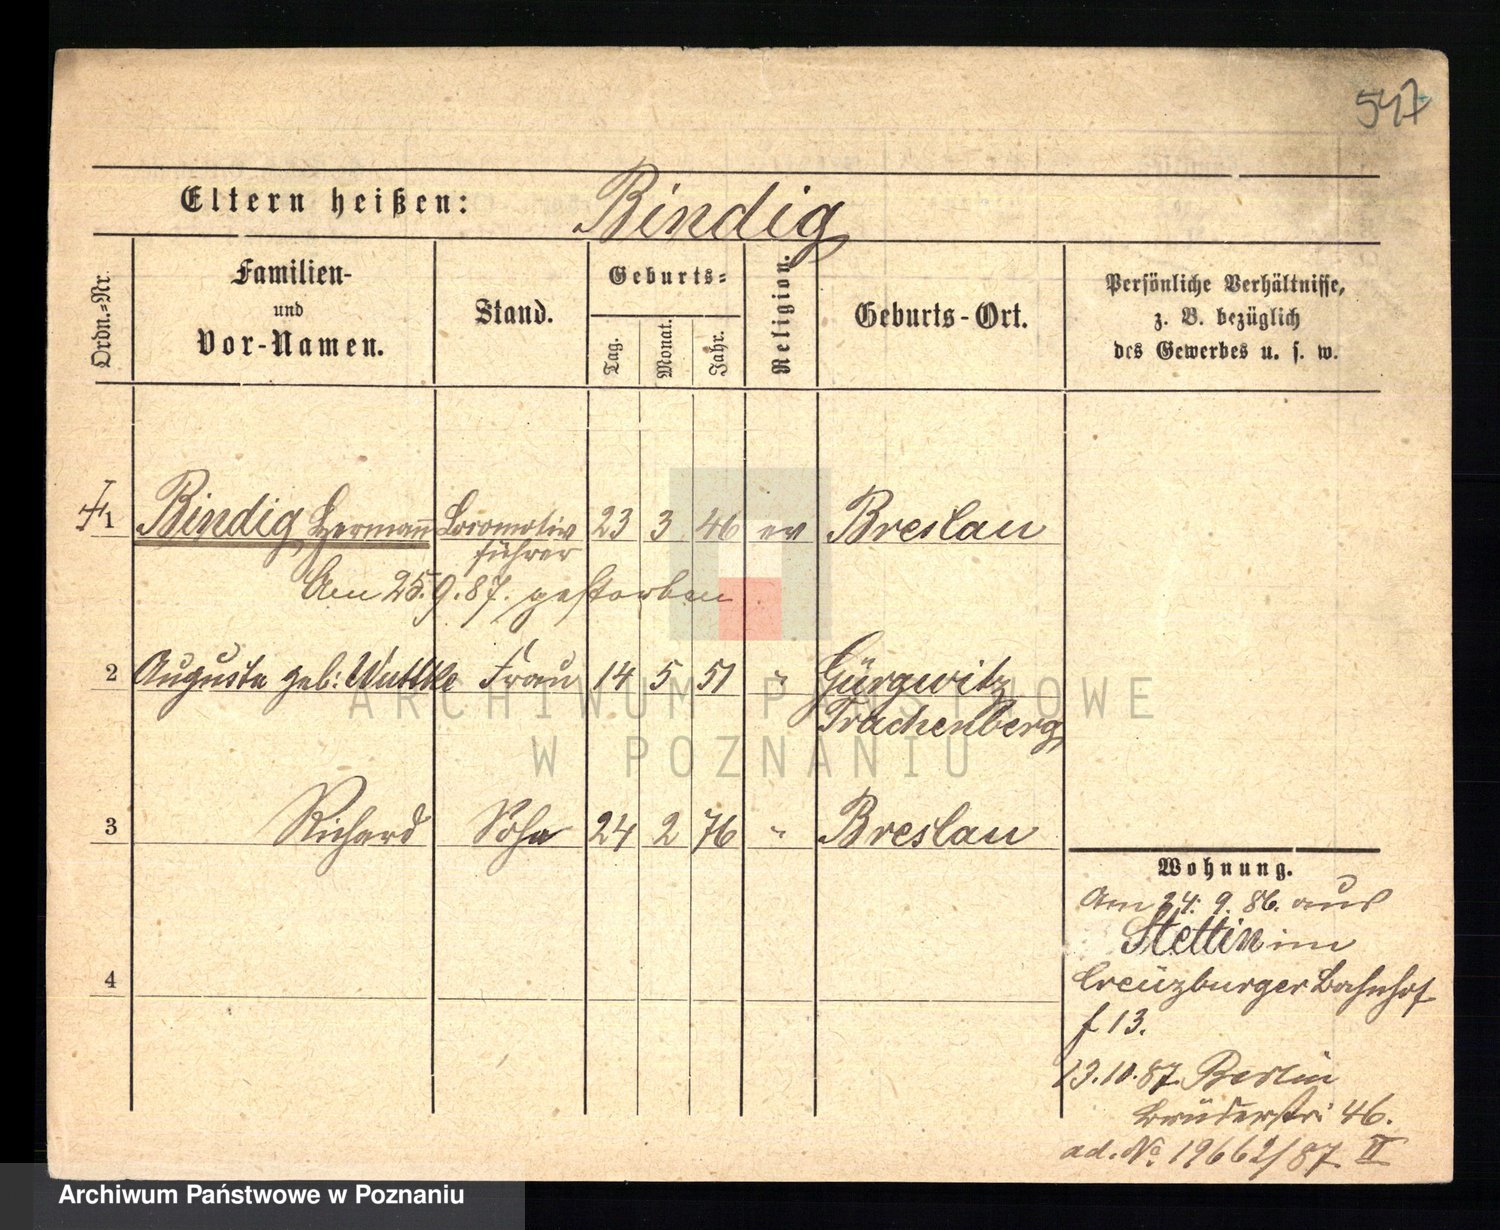 547
Eltern heißen: Bindig
Ordn.-Nr.
Familien-
und
Vor-Namen.
Stand.
Geburts-
Tag.
Monat.
Jahr.
Religion.
Geburts-Ort.
Persönliche Verhältnisse,
z. B. bezüglich
des Gewerbes u. s. w.
1 Bindig, Hermann Locomotiv 23 3 46 ev Breslau
führer
Am 25.9.87. gestorben
2 Auguste geb: Wuttke Frau 14 5 51 " Gürgwitz
Trachenberg
3 Richard Sohn 24 2 76 " Breslau
4
Wohnung.
Am 24. 9. 86. aus
Stettin im
Creuzburger Bahnhof
f 13.
13.10.87. Berlin
Brüderstr: 46.
ad. No. 19662/87. II
ARCHIWUM PAŃSTWOWE
W POZNANIU
Archiwum Państwowe w Poznaniu